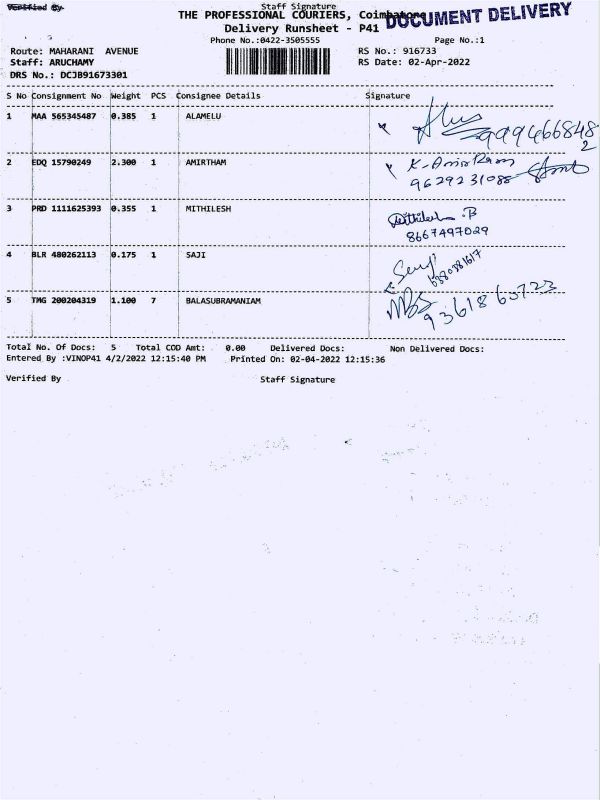 Verified By Staff Signature
THE PROFESSIONAL COURIERS, Coimbatore
DOCUMENT DELIVERY
Delivery Runsheet - P41
Phone No.:0422-3505555 Page No.:1
Route: MAHARANI AVENUE RS No.: 916733
Staff: ARUCHAMY RS Date: 02-Apr-2022
DRS No.: DCJB91673301
S No Consignment No Weight PCS Consignee Details Signature
1 MAA 565345487 0.385 1 ALAMELU
9994668482
2 EDQ 15790249 2.300 1 AMIRTHAM
9629231088
3 PRD 1111625393 0.355 1 MITHILESH
Mithilesh .B
8667497029
4 BLR 480262113 0.175 1 SAJI
5 TMG 200204319 1.100 7 BALASUBRAMANIAM
9361860723
Total No. Of Docs: 5 Total COD Amt: 0.00 Delivered Docs: Non Delivered Docs:
Entered By :VINOP41 4/2/2022 12:15:40 PM Printed On: 02-04-2022 12:15:36
Verified By Staff Signature